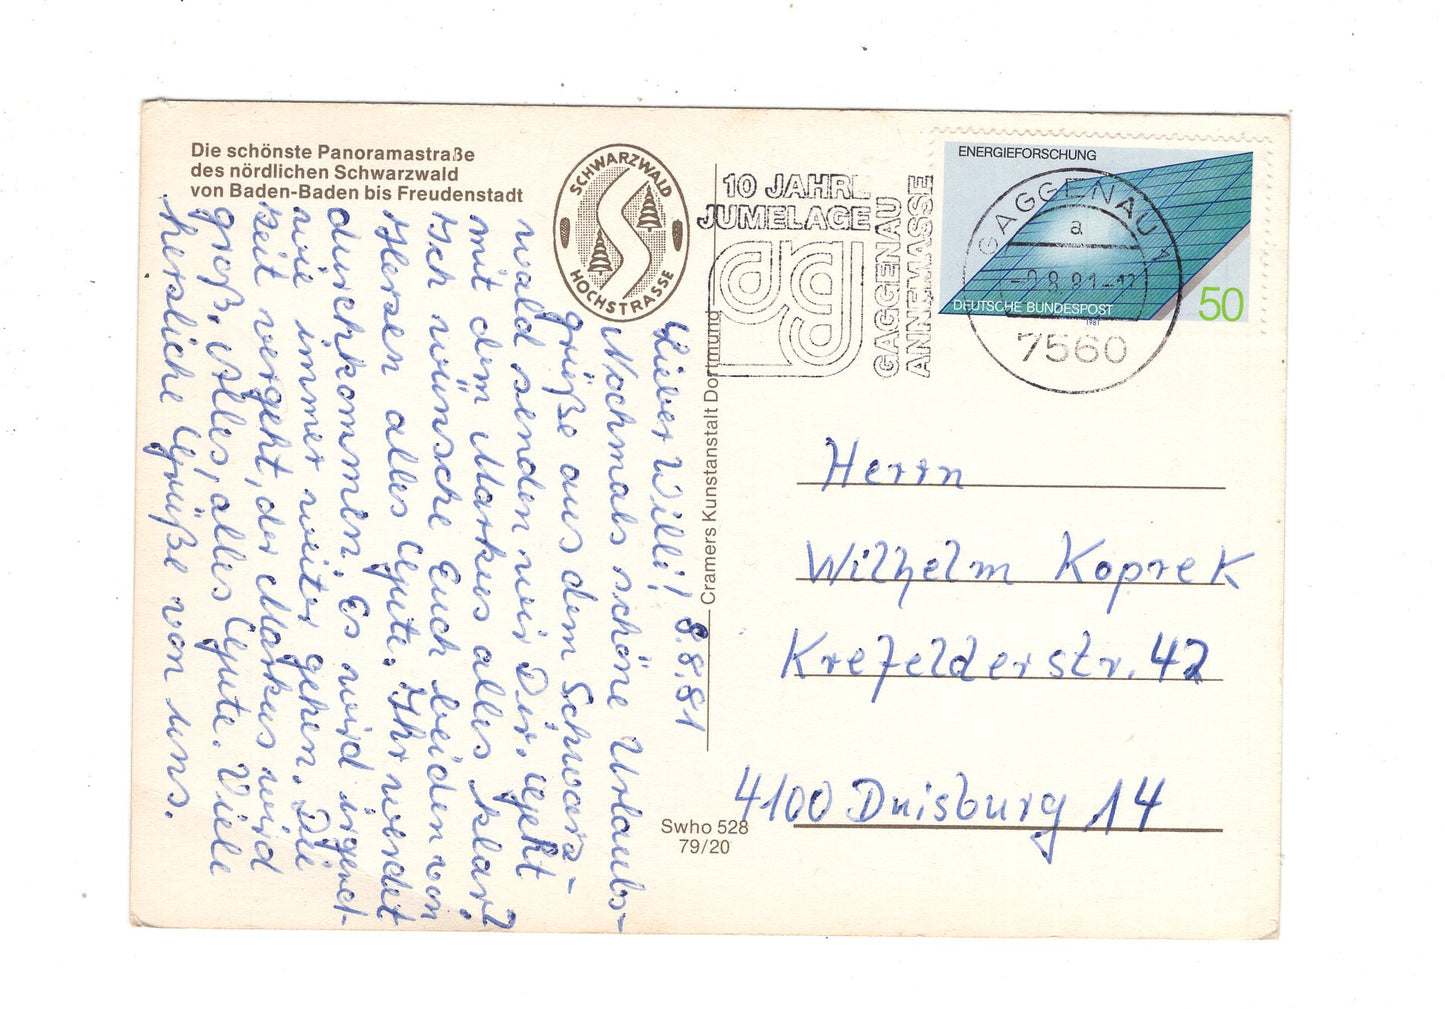 Die schönste Panoramastraße
des nördlichen Schwarzwald
von Baden-Baden bis Freudenstadt
SCHWARZWALD
HOCHSTRASSE
10 JAHRE
JUMELAGE
GAGGENAU
ANNEMASSE
ENERGIEFORSCHUNG
DEUTSCHE BUNDESPOST
1981
50
GAGGENAU 1
a
8.81-12
7560
Lieber Willi! 8.8.81
Nochmals schöne Urlaubs-
grüße aus dem Schwarz-
wald senden wir Dir. Geht
mit dem Markus alles klar?
Ich wünsche Euch beiden von
Herzen alles Gute. Ihr werdet
durchkommen. Es wird irgend-
wie immer weiter gehen. Die
Zeit vergeht, der Markus wird
groß. Alles, alles Gute. Viele
herzliche Grüße von uns.
Cramers Kunstanstalt Dortmund
Swho 528
79/20
Herrn
Wilhelm Koprek
Krefelderstr. 42
4100 Duisburg 14